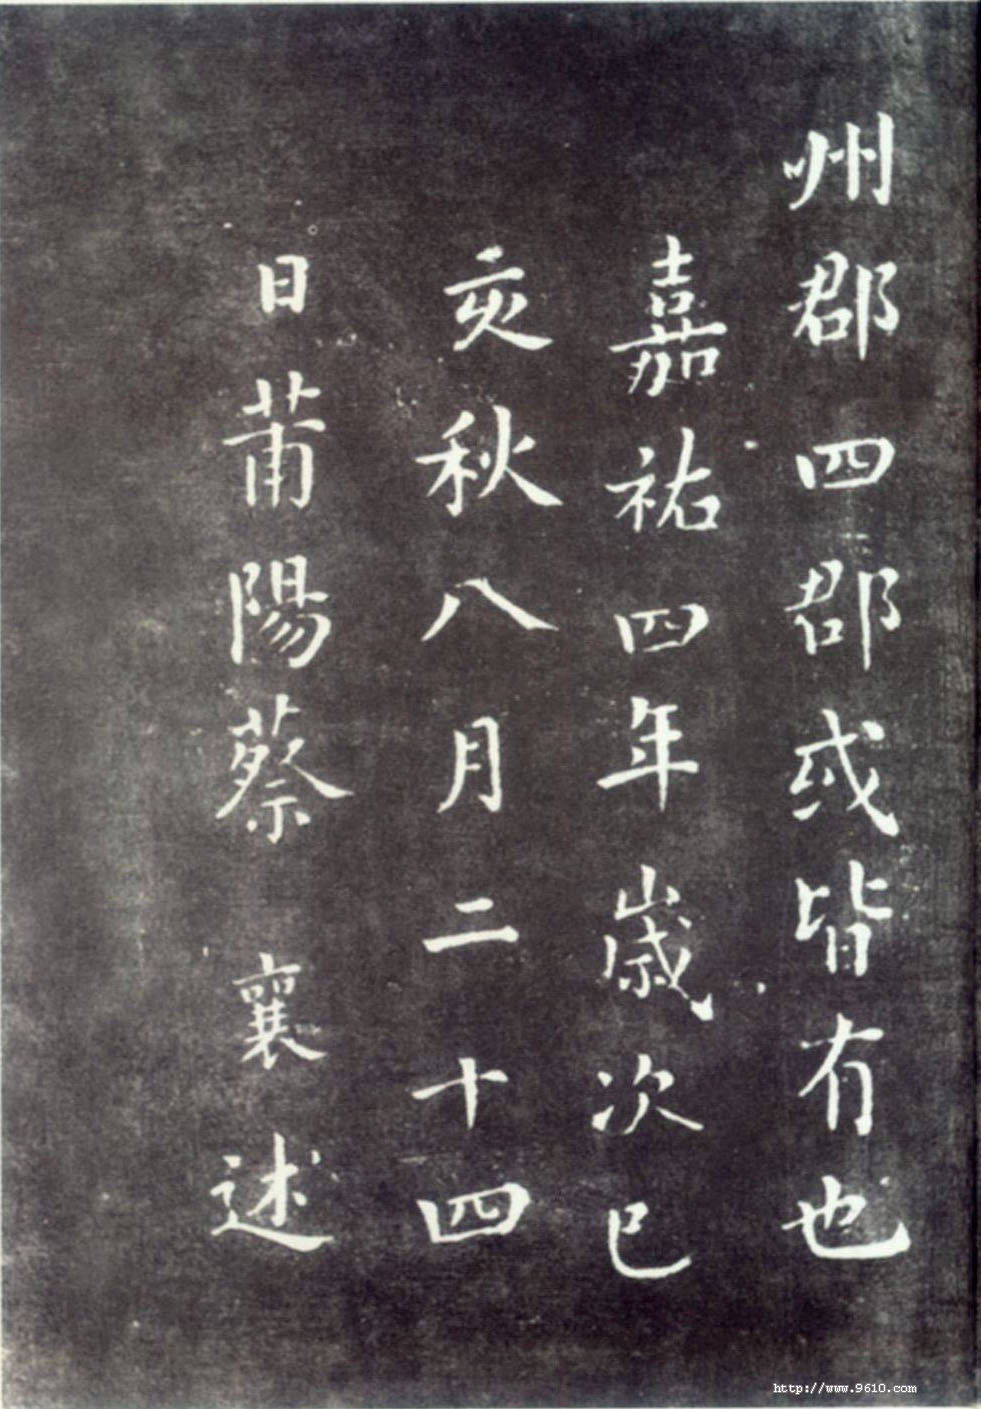 州郡四郡或皆有也
嘉祐四年歲次已
亥秋八月二十四
日莆陽蔡襄述
http://www.9610.com